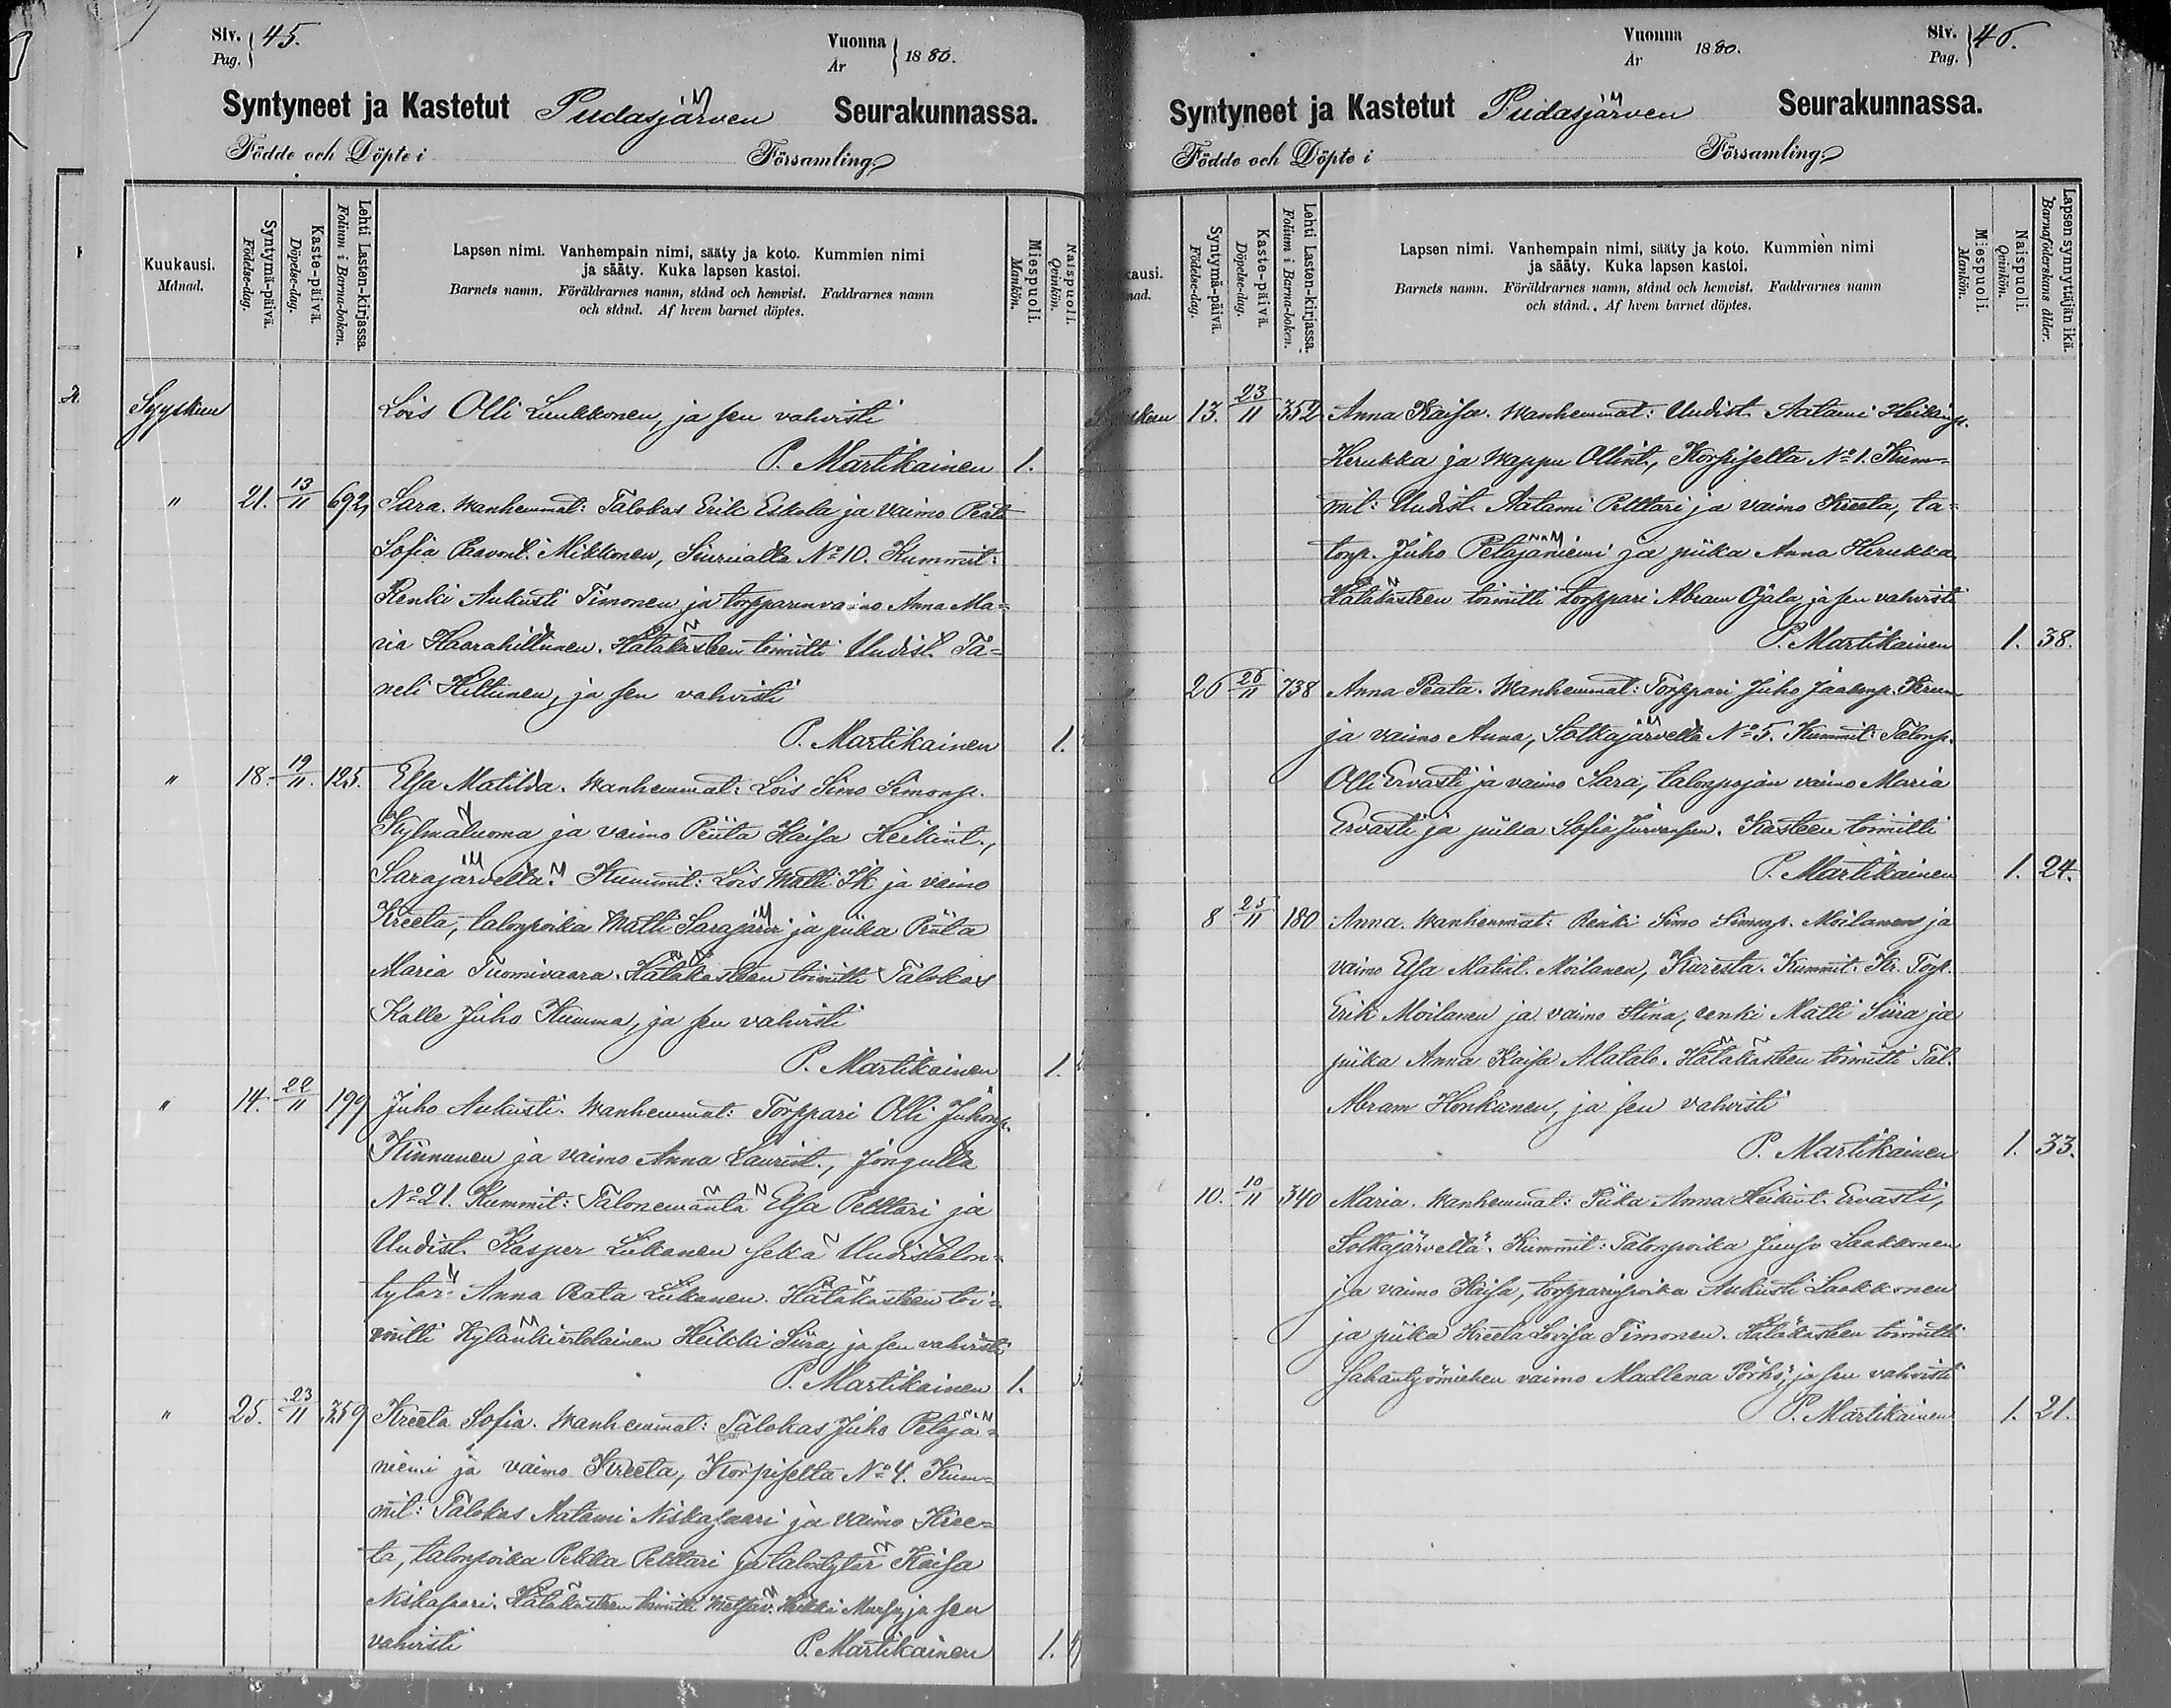 Siv. 45.
Pag.
Vuonna 1880.
År
Syntyneet ja Kastetut Pudasjärven Seurakunnassa.
Födde och Döpte i Församling
Kuukausi.
Månad.
Syntymä-päivä.
Födelse-dag.
Kaste-päivä.
Döpelse-dag.
Lehti Lasten-kirjassa.
Folium i Barna-boken.
Lapsen nimi. Vanhempain nimi, sääty ja koto. Kummien nimi
ja sääty. Kuka lapsen kastoi.
Barnets namn. Föräldrarnes namn, stånd och hemvist. Faddrarnes namn
och stånd. Af hvem barnet döptes.
Miespuoli.
Mankön.
Naispuoli.
Qvinkön.
Syyskuu Lois Olli Luukkonen, ja sen vahvisti
P. Martikainen 1.
" 21. 13/11 692, Sara. Wanhemmat: Talokas Erik Eskola ja vaimo Peata
Sofia Paavont. Mikkonen, Siurualla No 10. Kummit:
Renki Aukusti Timonen ja torpparinvaimo Anna Ma=
ria Haarahiltunen. Hätäkasteen toimitti Uudist. Ta=
neli Hiltunen, ja sen vahvisti
P. Martikainen 1.
" 18. 19/11. 125. Elsa Matilda. Wanhemmat: Lois Simo Simonp.
Kylmäluoma ja vaimo Priita Kaisa Heikint.,
Sarajärveltä. Kummit: Lois Matti Ik ja vaimo
Kreeta, talonpoika Matti Sarajärvi ja piika Priita
Maria Tuomivaara. Hätäkasteen toimitti Talokas
Kalle Juho Kumma, ja sen vahvisti
P. Martikainen 1.
" 14. 22/11 199 Juho Aukusti. Wanhemmat: Torppari Olli Juhonp.
Kinnunen ja vaimo Anna Laurint., Jongulla
No 21. Kummit: Talonemäntä Elsa Pelttari ja
Uudist. Kasper Liikanen sekä Uudistalon=
tytär Anna Peata Liikanen. Hätäkasteen toi=
mitti Kylänkiertolainen Heikki Siira, ja sen vahvisti
P. Martikainen 1.
" 25. 23/11 359 Kreeta Sofia. Wanhemmat: Talokas Juho Petäjä=
niemi ja vaimo Kreeta, Korpiselta No 4. Kum=
mit: Talokas Aatami Niskasaari ja vaimo Kree=
ta, talonpoika Pekka Pelttari ja talontytär Kaisa
Niskasaari. Hätäkasteen toimitti Heikki ja sen
vahvisti P. Martikainen 1.
Vuonna 1880.
År
Siv. 46.
Pag.
Syntyneet ja Kastetut Pudasjärven Seurakunnassa.
Födde och Döpte i Församling
kausi.
nad.
Syntymä-päivä.
Födelse-dag.
Kaste-päivä.
Döpelse-dag.
Lehti Lasten-kirjassa.
Folium i Barna-boken.
Lapsen nimi. Vanhempain nimi, sääty ja koto. Kummien nimi
ja sääty. Kuka lapsen kastoi.
Barnets namn. Föräldrarnes namn, stånd och hemvist. Faddrarnes namn
och stånd. Af hvem barnet döptes.
Miespuoli.
Mankön.
Naispuoli.
Qvinkön.
Lapsen synnyttäjän ikä.
Barnaföderskans ålder.
13. 23/11 352 Anna Kaisa. Wanhemmat: Uudist. Aatami Heikinp.
Herukka ja Wappu Ollint., Korpiselta No 1. Kum=
mit: Uudist. Aatami Pelttari ja vaimo Kreeta, ta=
lonp. Juho Petäjäniemi ja piika Anna Herukka.
Hätäkasteen toimitti torppari Abram Ojala, ja sen vahvisti
P. Martikainen 1. 38.
26 26/11 738 Anna Peata. Wanhemmat: Torppari Juho Jaakonp.
ja vaimo Anna, Sotkajärveltä No 5. Kummit: Talonp.
Olli Ervasti ja vaimo Sara, talonpojan vaimo Maria
Ervasti ja piika Sofia Jurvansuu. Kasteen toimitti
P. Martikainen 1. 24.
8 25/11 180 Anna. Wanhemmat: Renki Simo Simonp. Moilanen ja
vaimo Elsa Matint. Moilanen, Kuresta. Kummit: Kr. Torp.
Erik Moilanen ja vaimo Stina, renki Matti Siira ja
piika Anna Kaisa Alatalo. Hätäkasteen toimitti Tal.
Abram Honkanen, ja sen vahvisti
P. Martikainen 1. 33.
10. 10/11 340 Maria. Wanhemmat: Piika Anna Heikint. Ervasti,
Sotkajärveltä. Kummit: Talonpoika Juuso Laakkonen
ja vaimo Kaisa, torpparinpoika Aukusti Laakkonen
ja piika Kreeta Lovisa Timonen. Hätäkasteen toimitti
Sahantyömiehen vaimo Madlena Pörhö, ja sen vahvisti
P. Martikainen 1. 21.